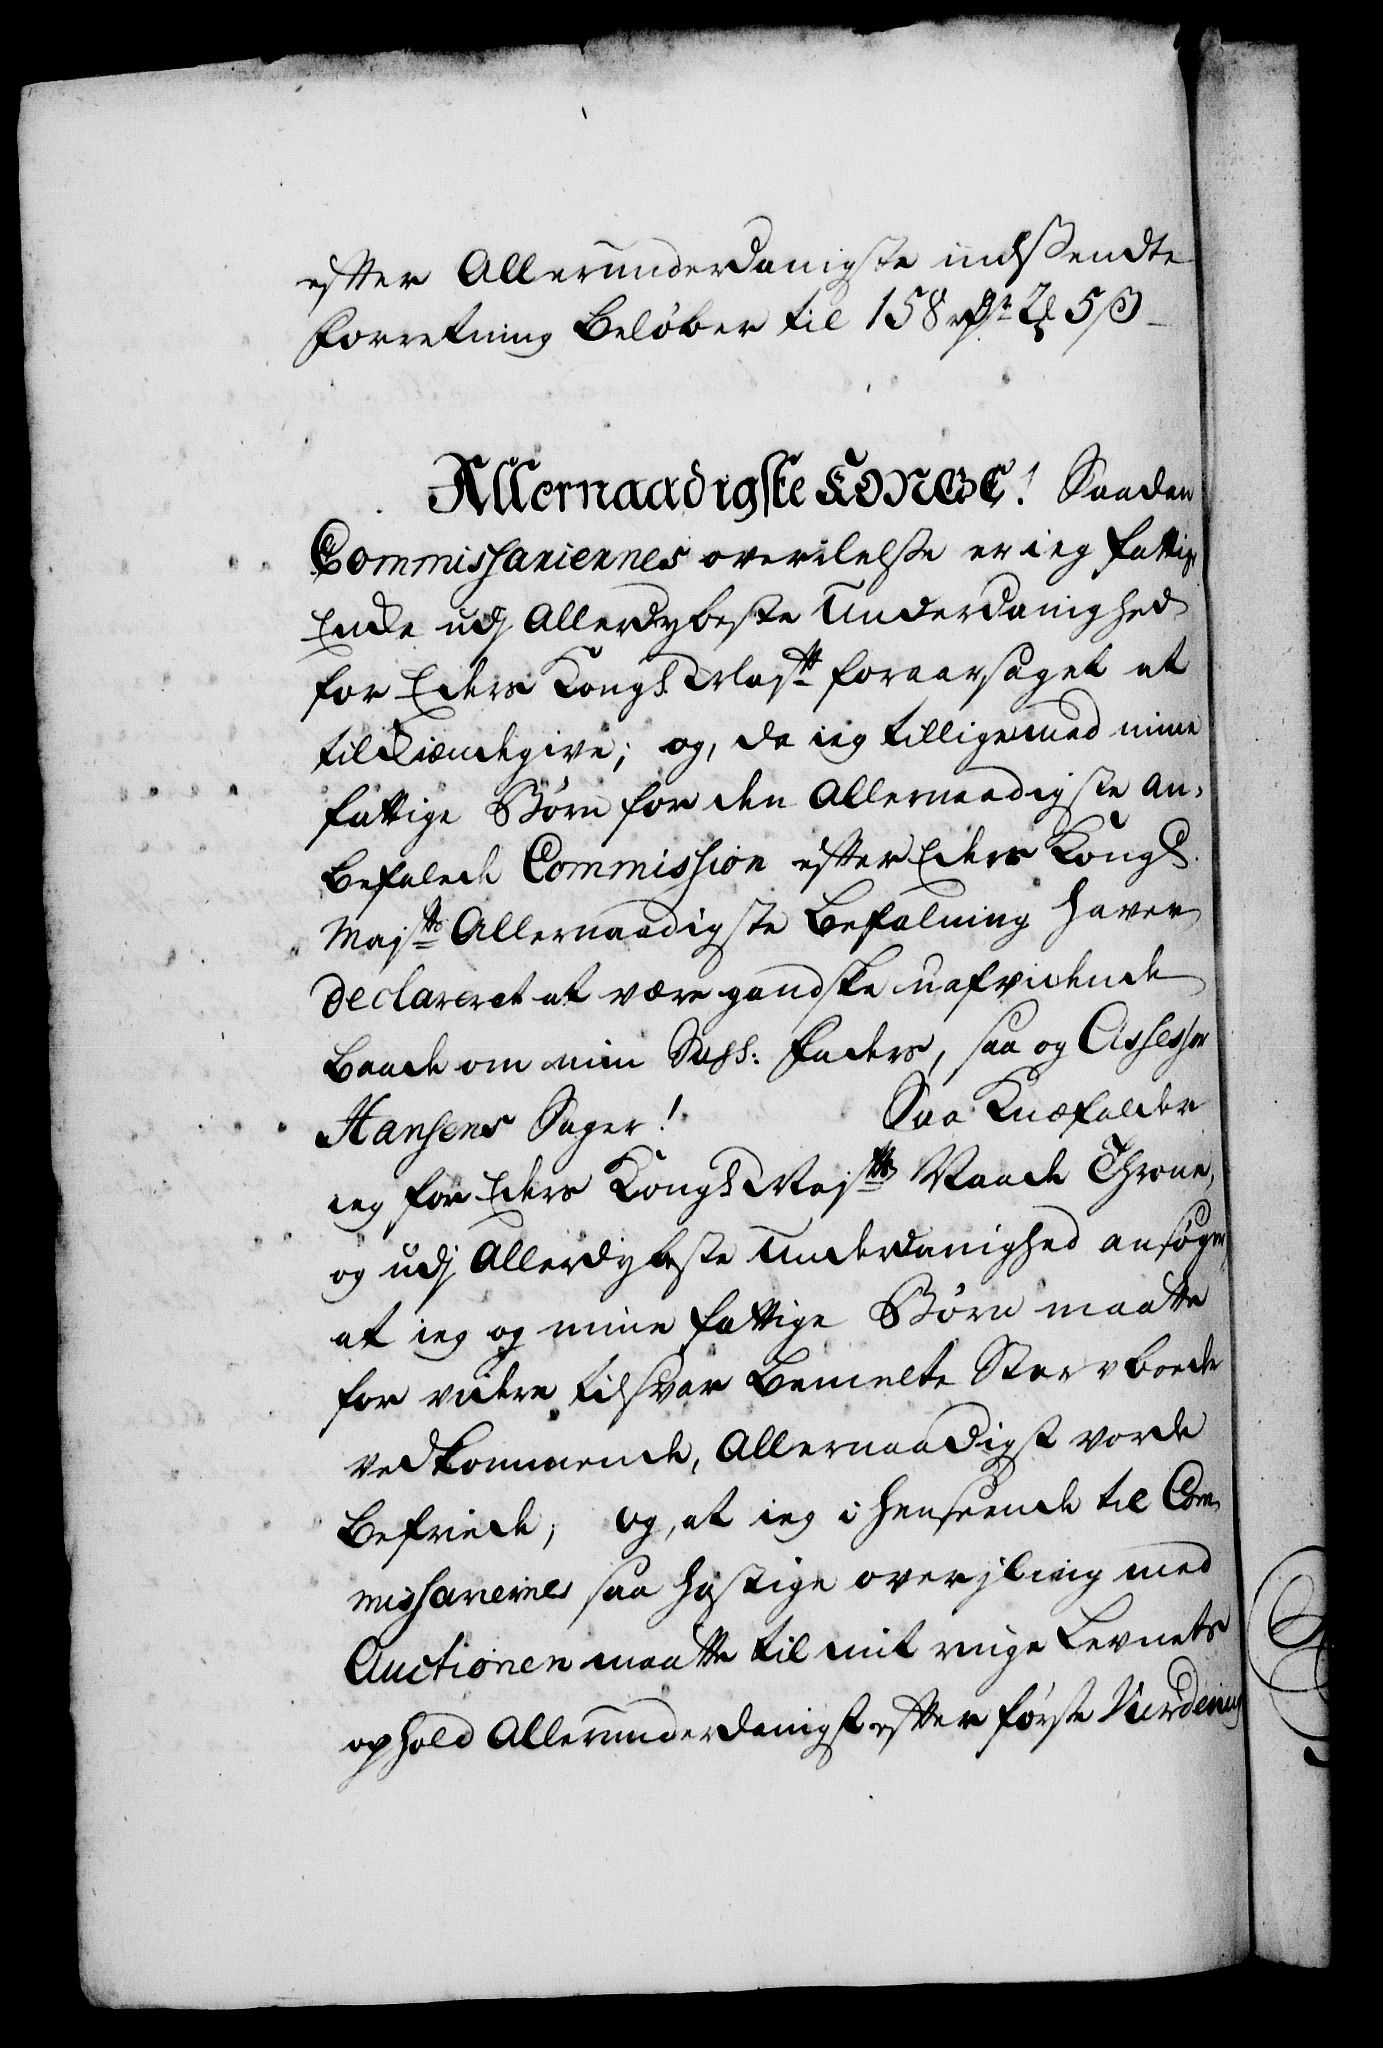 efter Allerunderdanigste indssendte
Forretning beløber til 158 rdr 2 5 ß
Allernaadigste KONGE! Saadan
Commissariernes overilelsse er ieg fattig
Encke udj Allerdybeste Underdanighed
for Eders Kongl Maÿtt foraarsaget at
tilkiændegive; og, da ieg tilligemed mine
fattige Børn for den Allernaadigste an-
befalede Commission efter Eders Kongl.
Majtts Allernaadigste Befalning haver
declareret at være gandske uafvidende
baade om min Sahl. Faders, saa og Assessor
Hansens Sager! Saa Knæfalder
ieg for Eders Kongl Majtts Naade Throne,
og udj Allerdybeste Underdanighed ansøger,
at ieg og mine fattige Børn maatte
for videre tilsvar bemelte Stervboede
vedkommende, Allernaadigst vorde
befriede; og, at ieg i henseende til Com
missarernes saa hastige overjling med
Auctionen maatte til mit ringe Levnets
ophold Allerunderdanigst efter første Vurdering